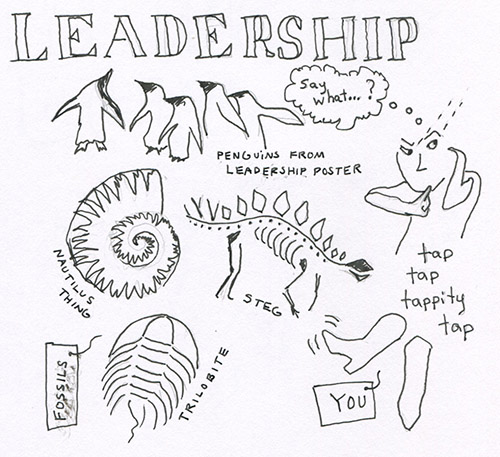 LEADERSHIP
Say
what...?
PENGUINS FROM
LEADERSHIP POSTER
NAUTILUS
THING
STEG
tap
tap
tappity
tap
FOSSILS
TRILOBITE
YOU